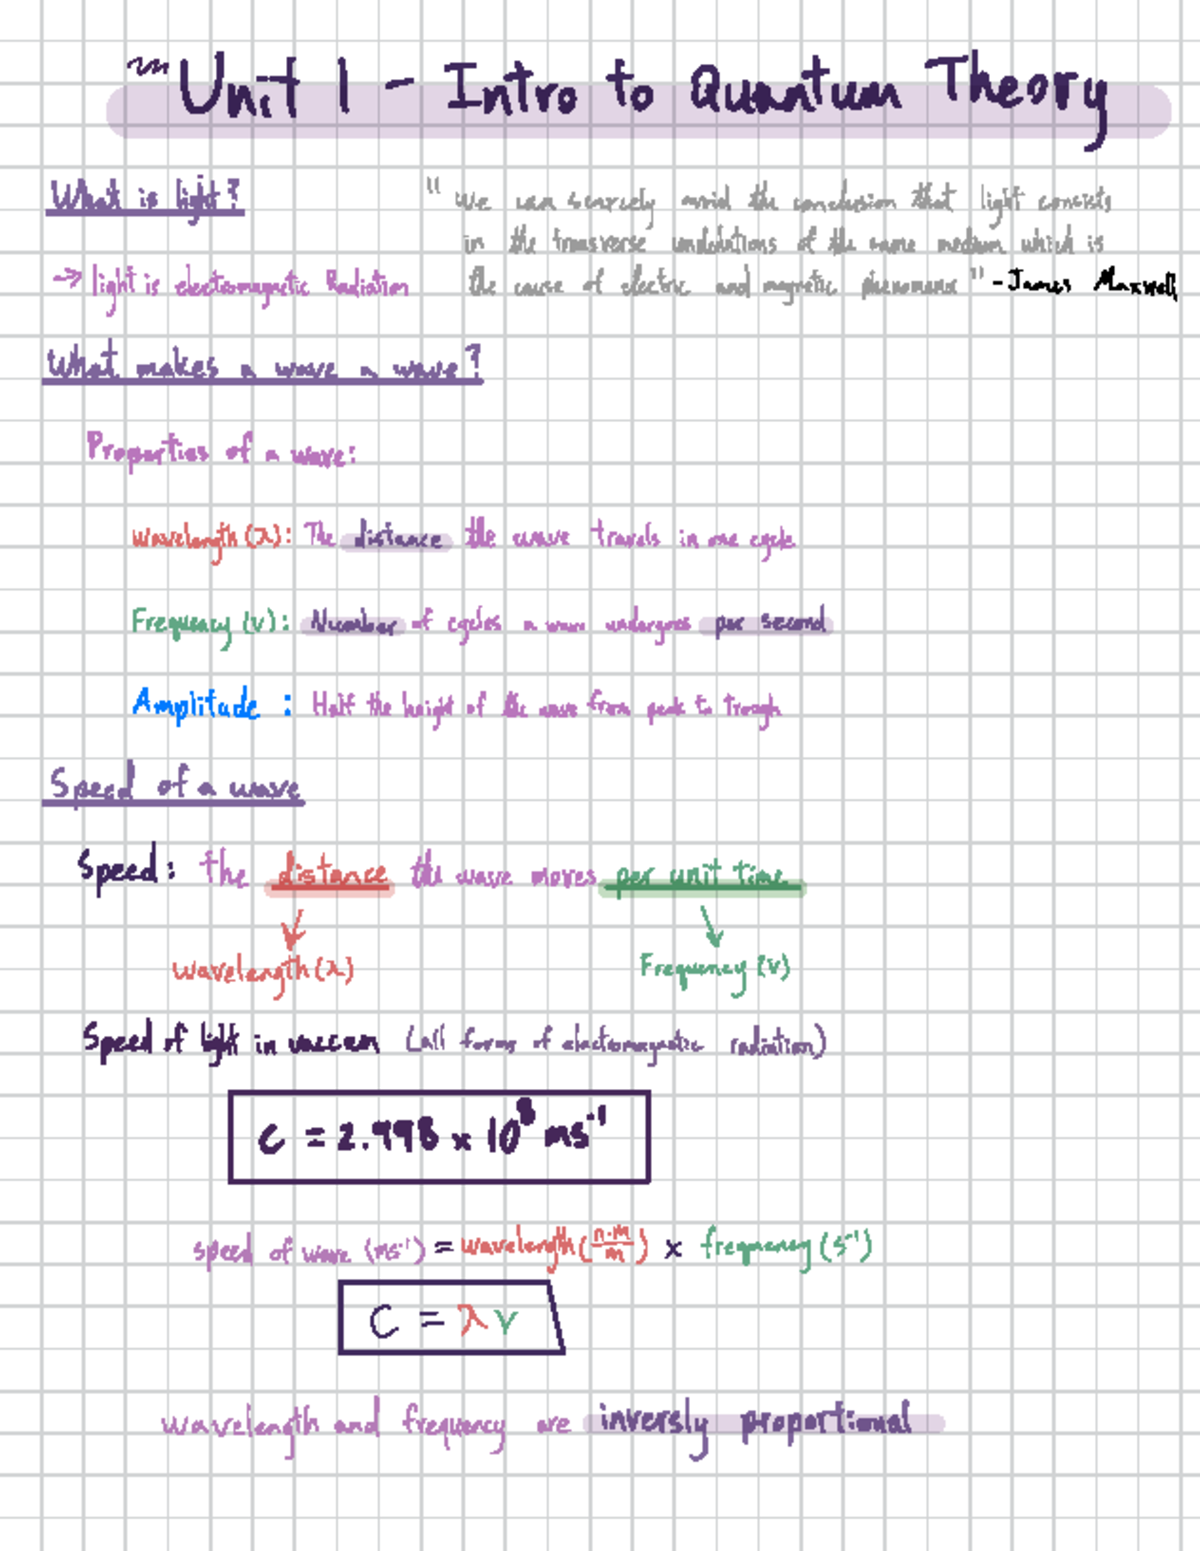 Unit 1 - Intro to Quantum Theory
What is light?
"We can scarcely avoid the conclusion that light consists
in the transverse undulations of the same medium which is
the cause of electric and magnetic phenomena" - James Maxwell
→ light is electromagnetic Radiation
What makes a wave a wave?
Properties of a wave:
Wavelength (λ): The distance the wave travels in one cycle
Frequency (v): Number of cycles a wave undergoes per second
Amplitude : Half the height of the wave from peak to trough
Speed of a wave
Speed: the distance the wave moves per unit time
Wavelength (λ) Frequency (v)
Speed of light in vaccum (all forms of electromagnetic radiation)
C = 2.998 x 10⁸ ms⁻¹
speed of wave (ms⁻¹) = wavelength (n·m/m) x frequency (s⁻¹)
C = λv
wavelength and frequency are inversly proportional